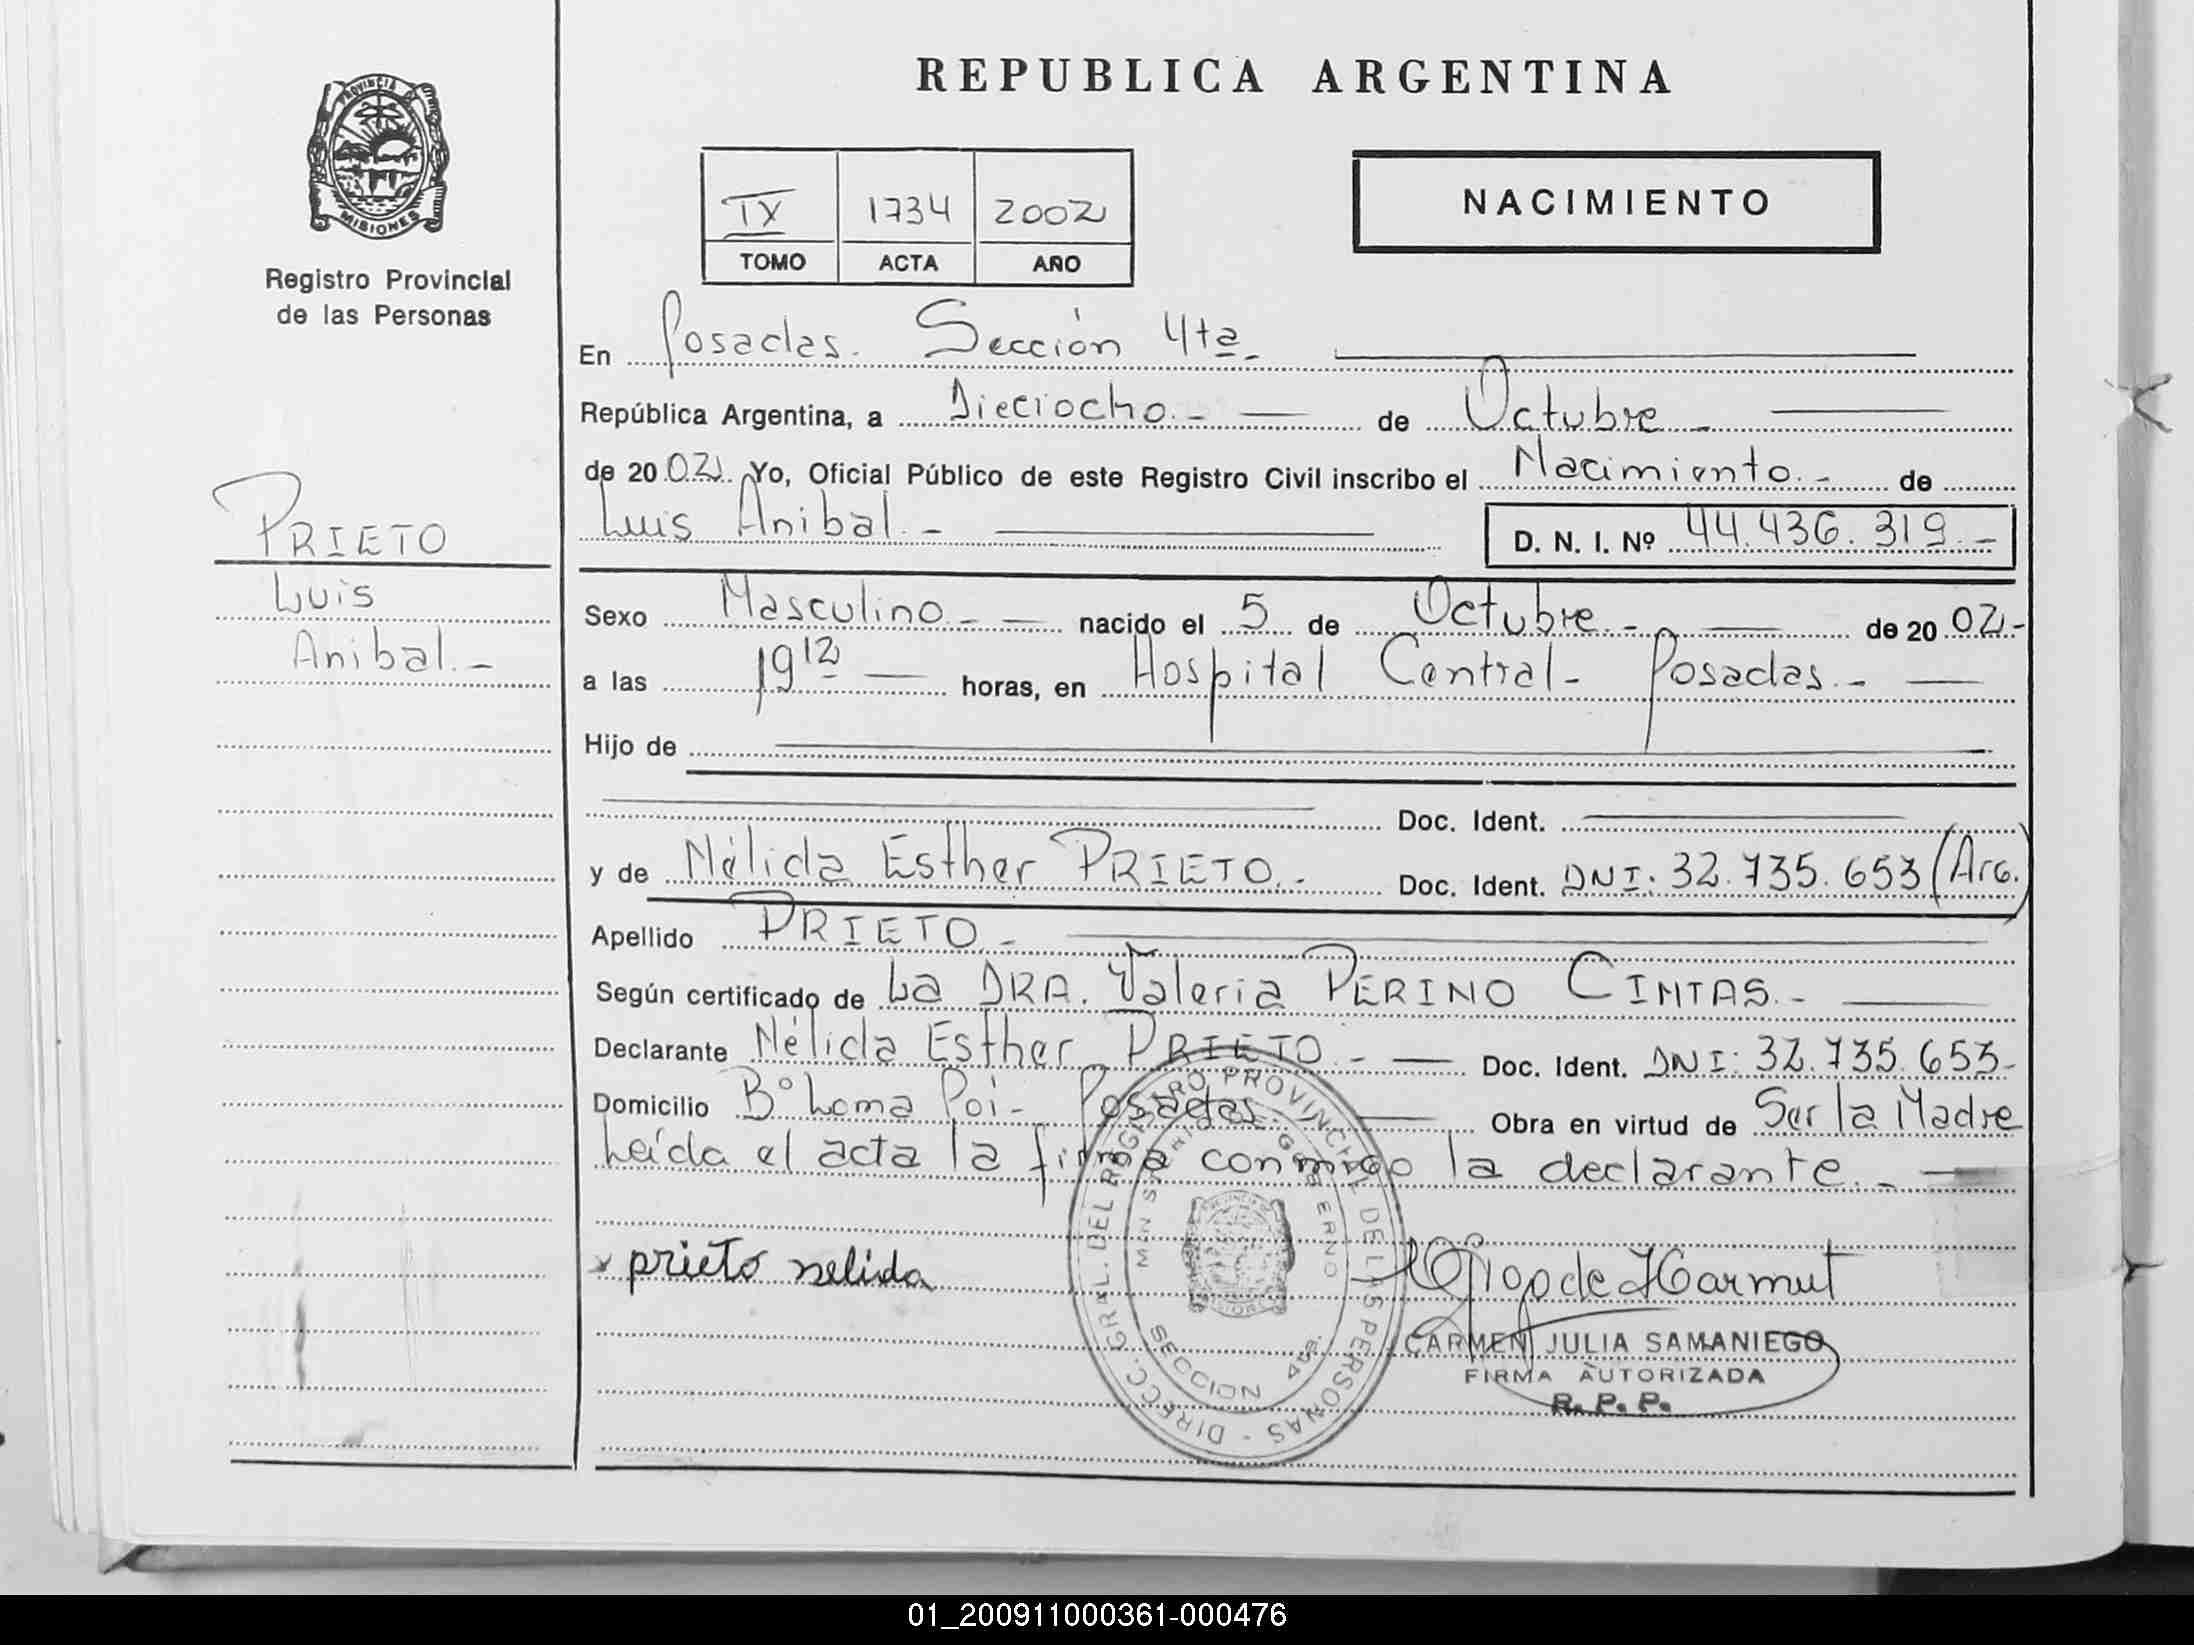 REPUBLICA ARGENTINA
PROVINCIA DE
MISIONES
Registro Provincial
de las Personas
IX 1734 2002
TOMO ACTA AÑO
NACIMIENTO
En Posadas. Sección 4ta.
República Argentina, a Dieciocho.- de Octubre.
de 2002. Yo, Oficial Público de este Registro Civil inscribo el Nacimiento.- de
Luis Anibal.- D. N. I. Nº 44.436.319.-
PRIETO
Luis
Anibal.-
Sexo Masculino.- nacido el 5 de Octubre.- de 2002-
a las 19 12 horas, en Hospital Central- Posadas.-
Hijo de
Doc. Ident.
y de Nélida Esther PRIETO.- Doc. Ident. DNI: 32.735.653 (Arg.)
Apellido PRIETO.-
Según certificado de La DRA. Valeria PERINO CINTAS.-
Declarante Nélida Esther PRIETO.- Doc. Ident. DNI: 32.735.653-
Domicilio Bº Loma Poi- Posadas. Obra en virtud de Ser la Madre
Leída el acta la firma conmigo la declarante.-
prieto nelida
DIRECC. GRAL. DEL REGISTRO PROVINCIAL DE LAS PERSONAS -
SECCION 4ta.
CARMEN JULIA SAMANIEGO
FIRMA AUTORIZADA
R. P. P.
01_200911000361-000476